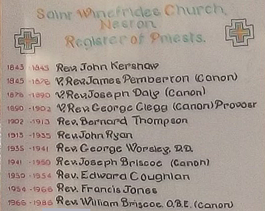 Saint Winefrides Church,
Neston
Register of Priests.
1843 - 1845 Rev. John Kershaw
1845 - 1876 V. Rev. James Pemberton (Canon)
1876 - 1890 V. Rev. Joseph Daly (Canon)
1890 - 1902 V. Rev. George Clegg (Canon) Provost
1902 - 1913 Rev. Bernard Thompson
1913 - 1935 Rev. John Ryan
1935 - 1941 Rev. George Worsley, D.D.
1941 - 1950 Rev. Joseph Briscoe (Canon)
1950 - 1954 Rev. Edward Coughlan
1954 - 1966 Rev. Francis Jones
1966 - 1986 Rev. William Briscoe, O.B.E. (Canon)